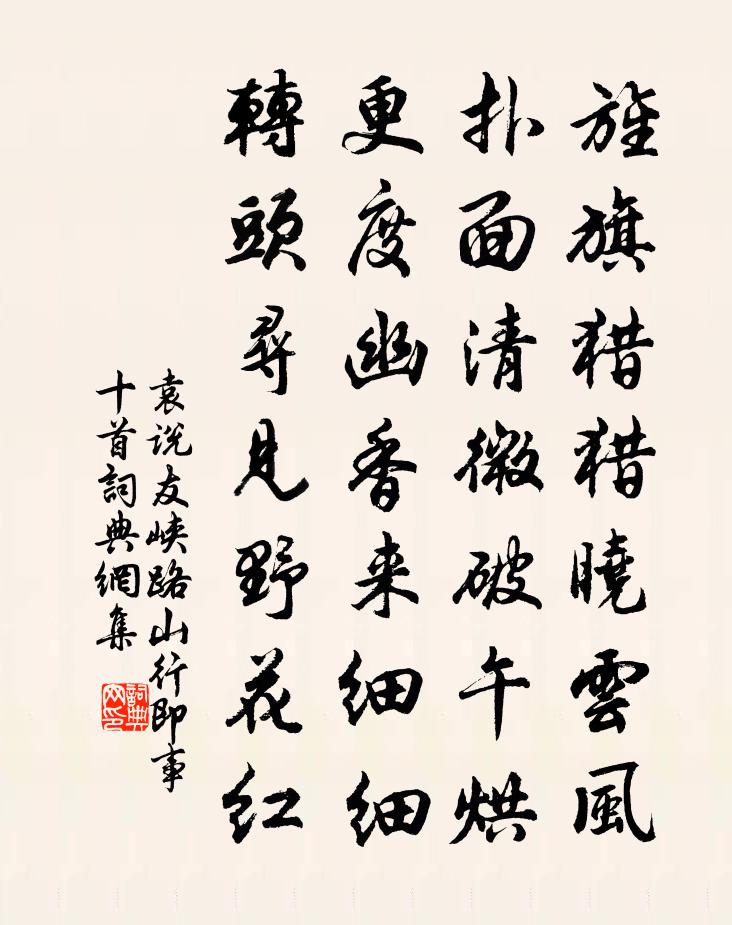 旌旗猎猎曉雲風
扑面清微破午烘
更度幽香来细细
轉頭尋見野花红
袁说友峡路山行即事
十首詞典網集
詞典网印